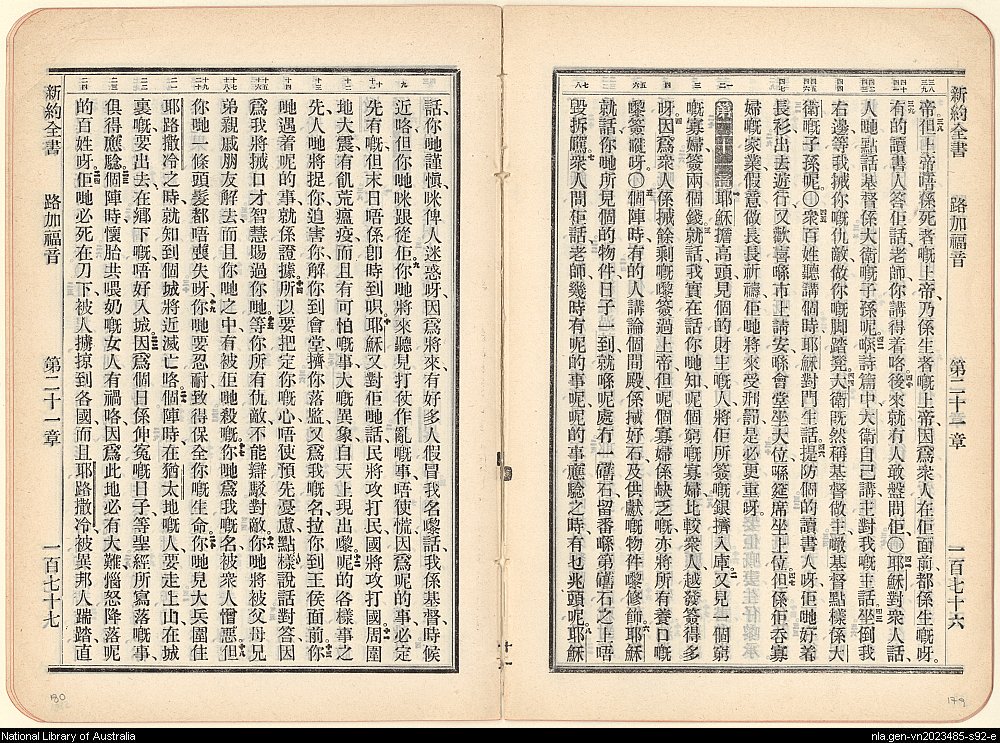 新約全書 路加福音 第二十一章 一百七十六
帝但上帝唔係死者嘅上帝乃係生者嘅上帝因爲衆人在佢面前都係生嘅呀
有的讀書人答佢話老師你講得着咯後來就有人敢盤問佢〇耶穌對衆人話
人哋點話基督係大衛嘅子孫呢喺詩篇中大衛自己講主對我嘅主話坐倒我
右邊等我搣你嘅仇敵做你嘅脚踏凳大衛既然稱基督做主噉基督點樣係大
衛嘅子孫呢〇衆百姓聽講個時耶穌對門生話提防個的讀書人呀佢哋好着
長衫出去遊行又歡喜喺市上講安喺會堂坐大位喺筵席坐上位但係佢吞寡
婦嘅家業假意做長長祈禱佢哋將來受刑罰是必更重呀
第二十一章 耶穌擔高頭見個的財主嘅人將佢所簽嘅銀擠入庫又見一個窮
嘅寡婦簽兩個錢就話我實在話你哋知呢個窮嘅寡婦比較衆人越發簽得多
呀因爲衆人係搣餘剩嘅嚟簽過上帝但呢個寡婦係缺乏嘅亦將所有養口嘅
嚟簽嶒呀〇個陣時有的人講論個間殿係搣好石及供獻嘅物件嚟修飾耶穌
就話你哋所見個的物件日子一到就喺呢處冇一礴石留番喺第礴石之上唔
毀拆嘅衆人問佢話老師幾時有呢的事呢呢的事應驗之時有乜兆頭呢耶穌
話你哋謹愼咪俾人迷惑呀因爲將來有好多人假冒我名嚟話我係基督時候
近咯但你哋咪跟從佢你哋將來聽見打仗作亂嘅事唔使慌因爲呢的事必定
先有嘅但末日唔係卽時到唄耶穌又對佢哋話民將攻打民國將攻打國周圍
地大震有飢荒瘟疫而且有可怕嘅事大嘅異象自天上現出嚟呢的各樣事之
先人哋將捉你追害你解你到會堂擠你落監又爲我嘅名拉你到王侯面前你
哋遇着呢的事就係證據所以要把定你嘅心唔使預先憂慮點樣說話對答因
爲我將搣口才智慧賜過你哋等你所有仇敵不能辯駁對敵你哋將被父母兄
弟親戚朋友解去而且你哋之中有被佢哋殺嘅你哋爲我嘅名被衆人憎惡但
你哋一條頭髮都唔喪失呀你哋要忍耐致得保全你嘅生命你哋見大兵圍住
耶路撒冷之時就知到個城將近滅亡咯個陣時在猶太地嘅人要走上山在城
裏嘅要出去在鄉下嘅唔好入城因爲個日係伸寃嘅日子等聖經所寫落嘅事
俱得應驗個陣時懷胎共喂奶嘅女人有禍咯因爲此地必有大難惱怒降落呢
的百姓呀佢哋必死在刀下被人擄掠到各國而且耶路撒冷被異邦人踹踏直
新約全書 路加福音 第二十一章 一百七十七
179
180
National Library of Australia
nla.gen-vn2023485-s92-e